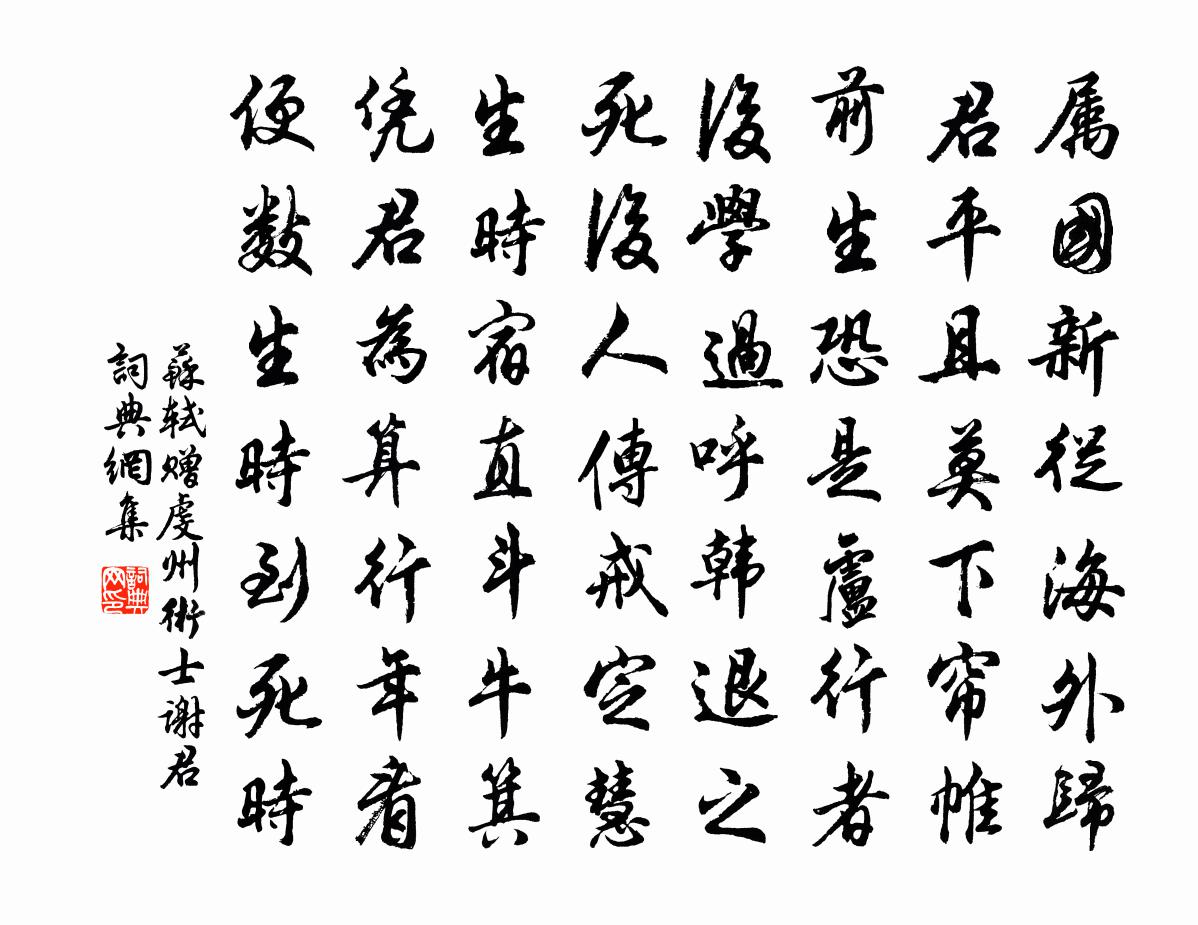 属國新從海外歸
君平且莫下帘帷
前生恐是盧行者
後學過呼韩退之
死後人傳戒定慧
生時宿直斗牛箕
凭君為算行年看
便数生時到死時
蘇轼赠虔州術士谢君
詞典網集
詞典网印